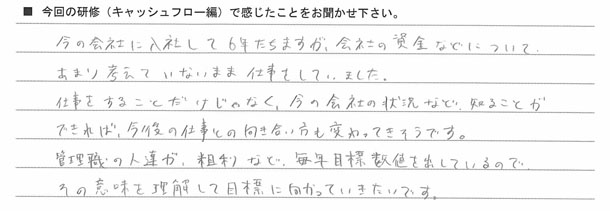 ■ 今回の研修（キャッシュフロー編）で感じたことをお聞かせ下さい。
今の会社に入社して6年たちますが、会社の資金などについて、
あまり考えていないまま仕事をしていました。
仕事をすることだけじゃなく、今の会社の状況など、知ることが
できれば、今後の仕事との向き合い方も変わってきそうです。
管理職の人達が、粗利など、毎年目標数値を出しているので、
その意味を理解して目標に向かっていきたいです。